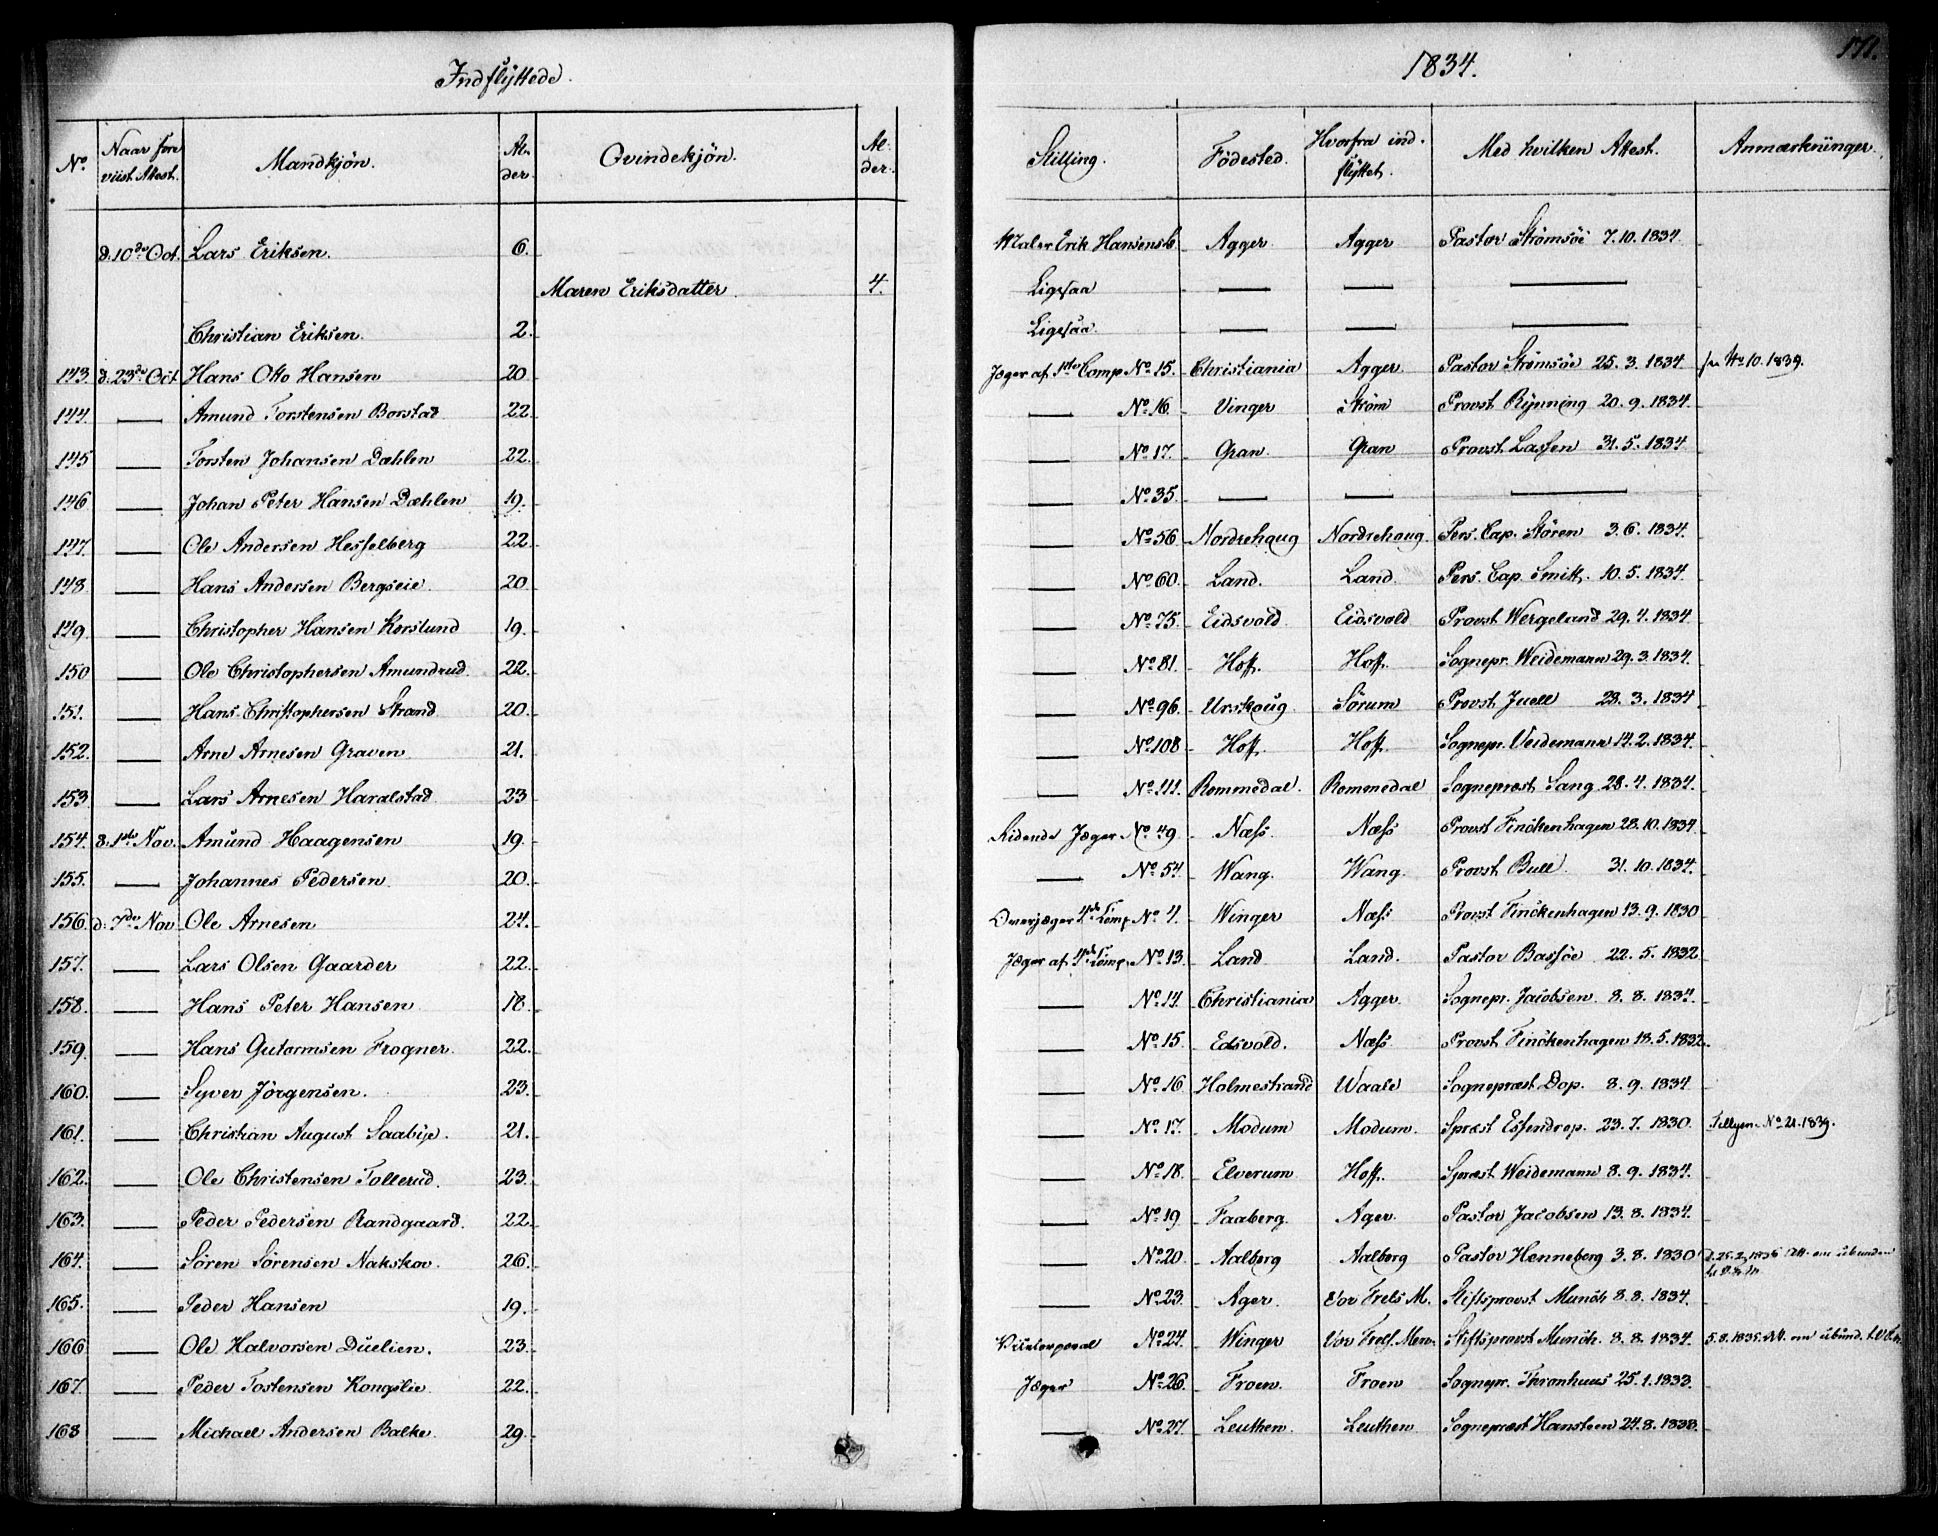 Indflyttede.
1834.
171.
No
Naar fore viist Attest.
Mandkjön.
Al. der.
Qvindekjön.
Al. der.
Stilling.
Födested.
Hvorfra ind. flyttet.
Med hvilken Attest.
Anmærkninger.
d. 10de Oct. Lars Eriksen. 6. Maler Erik Hansens Agger Agger Pastor Strömsöe 7.10.1834
Maren Eriksdatter 4. Ligesaa — — —
Christian Eriksen. 2. Ligesaa — — —
143. d. 23de Oct Hans Otto Hansen 20 Jæger af 1ste Comp No 15. Christiania Agger Pastor Strömsöe 25.3.1834 No 10. 1839.
144. — Amund Torstensen Borstad 22 — No 16. Vinger Ström Provst Rÿnning 20.9.1834.
145 — Torsten Johansen Dæhlen 22. — No 17. Gran Gran Provst Lassen 31.5.1834
146 — Johan Peter Hansen Dæhlen 19. — No 35. — — —
147. — Ole Andersen Hesselberg 22 — No 56 Nordrehaug Nordrehaug. Pers. Cap. Stören 3.6.1834.
148. — Hans Andersen Bergseie. 20 — No 60. Land. Land Pers. Cap. Smitt. 10.5.1834
149. — Christopher Hansen Korslund 19. — No 75. Eidsvold Eidsvold Provst Wergeland 29.4.1834
150 — Ole Christophersen Amundrud. 22. — No 81. Hoff. Hoff. Sognepr. Weidemann 29.3.1834.
151. — Hans Christophersen Strand 20. — No 96. Urskoug Sörum Provst Juell 28.3.1834
152. — Arne Arnesen Graven 21. — No 108 Hoff. Hoff. Sognepr. Veidemann 14.2.1834.
153 — Lars Arnesen Haralstad 23 — No 111. Rommedal. Rommedal Sognepræst Sang 28.4.1834.
154. d. 1ste Nov. Amund Haagensen 19. Ridende Jæger No 49 Næss. Næss Provst Finckenhagen 28.10.1834.
155. — Johannes Pedersen 20. — No 54. Wang. Wang. Provst Bull. 31.10.1834.
156. d. 7de Nov Ole Arnesen 24. Overjæger 4de Comp No 4. Winger Næss Provst Finckenhagen 13.9.1830
157. — Lars Olsen Gaarder 22. Jæger af 4de Comp. No 13. Land Land. Pastor Bassöe 22.5.1832
158. — Hans Peter Hansen 18. — No 14. Christiania Agger. Sognepr. Jacobsen. 8.8.1834.
159. — Hans Gutormsen Frogner. 22. — No 15. Edsvold. Næss Provst Finckenhagen 18.5.1832.
160. — Syver Jörgensen. 23. — No 16 Holmestrand Waale Sognepræst Dop. 8.9.1834
161. — Christian August Saabÿe. 21. — No 17. Modum Modum. Spræst Essendrop. 23.7.1830. No 21. 1839.
162. — Ole Christensen Tollerud. 23. — No 18. Elverum Hoff. Spræst Weidemann 8.9.1834.
163. — Peder Pedersen Randgaard. 22. — No 19 Faaberg. Ager. Pastor Jacobsen 13.8.1834.
164. — Sören Sörensen Nakskov. 26. — No 20. Aalborg Aalborg Pastor Henneberg 3.8.1830 Att. om ubunden
165. — Peder Hansen 19. — No 23. Ager. Vor Frels M. Stiftsprovst Munch 8.8.1834.
166 — Ole Halvorsen Düelien. 23. No 24. Winger Vor Frels. Men. Stiftsprovst Munch. 8.8.1834. 5.8.1835. Att. om ubund.
167. — Peder Tostensen Kongslie. 22. Jæger No 26. Froen. Froen Sognepr. Thronhuus 25.1.1833.
168 — Michael Andersen Balke. 29. — No 27. Leuthen. Leuthen. Sognepræst Hansteen 24.8.1833.